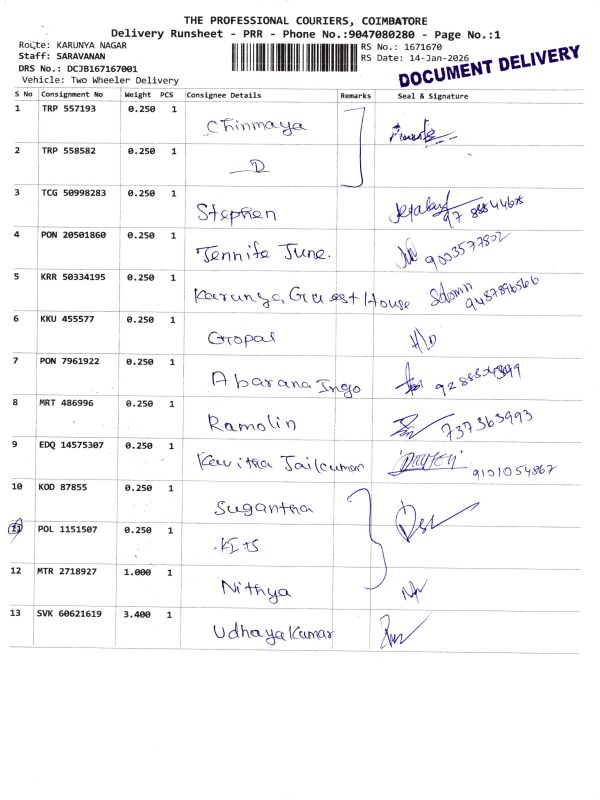 THE PROFESSIONAL COURIERS, COIMBATORE
Delivery Runsheet - PRR - Phone No.:9047080280 - Page No.:1
Route: KARUNYA NAGAR
RS No.: 1671670
Staff: SARAVANAN
RS Date: 14-Jan-2026
DRS No.: DCJB167167001
Vehicle: Two Wheeler Delivery
DOCUMENT DELIVERY
S No Consignment No Weight PCS Consignee Details Remarks Seal & Signature
1 TRP 557193 0.250 1 Chinmaya
2 TRP 558582 0.250 1
3 TCG 50998283 0.250 1 Stephen
4 PON 20501860 0.250 1 Jennife June. 9003577802
5 KRR 50334195 0.250 1 Karunya Guest House Solomn
6 KKU 455577 0.250 1 Gopal H/D
7 PON 7961922 0.250 1 Abarana Ingo
8 MRT 486996 0.250 1 Ramolin 737363993
9 EDQ 14575307 0.250 1 Kavitha Jaikumar 9101054867
10 KOD 87855 0.250 1 Sugantha
11 POL 1151507 0.250 1 KITS
12 MTR 2718927 1.000 1 Nithya
13 SVK 60621619 3.400 1 Udhaya Kumar